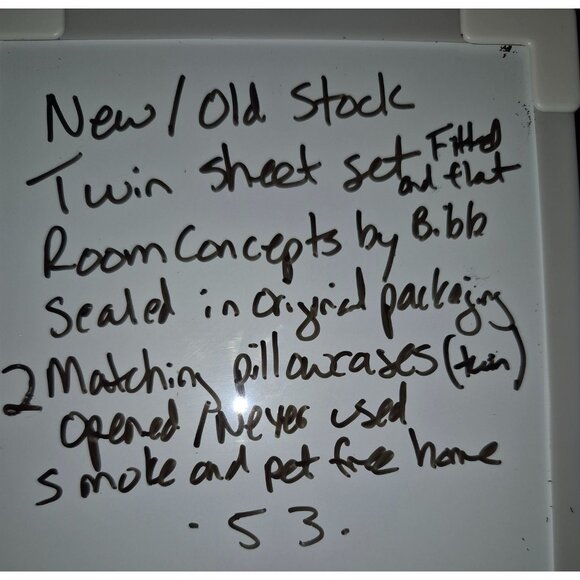 New / Old Stock
Twin sheet set Fitted and flat
Room Concepts by Bibb
Sealed in original packaging
2 Matching pillowcases (twin)
opened / Never used
smoke and pet free home
. 53 .